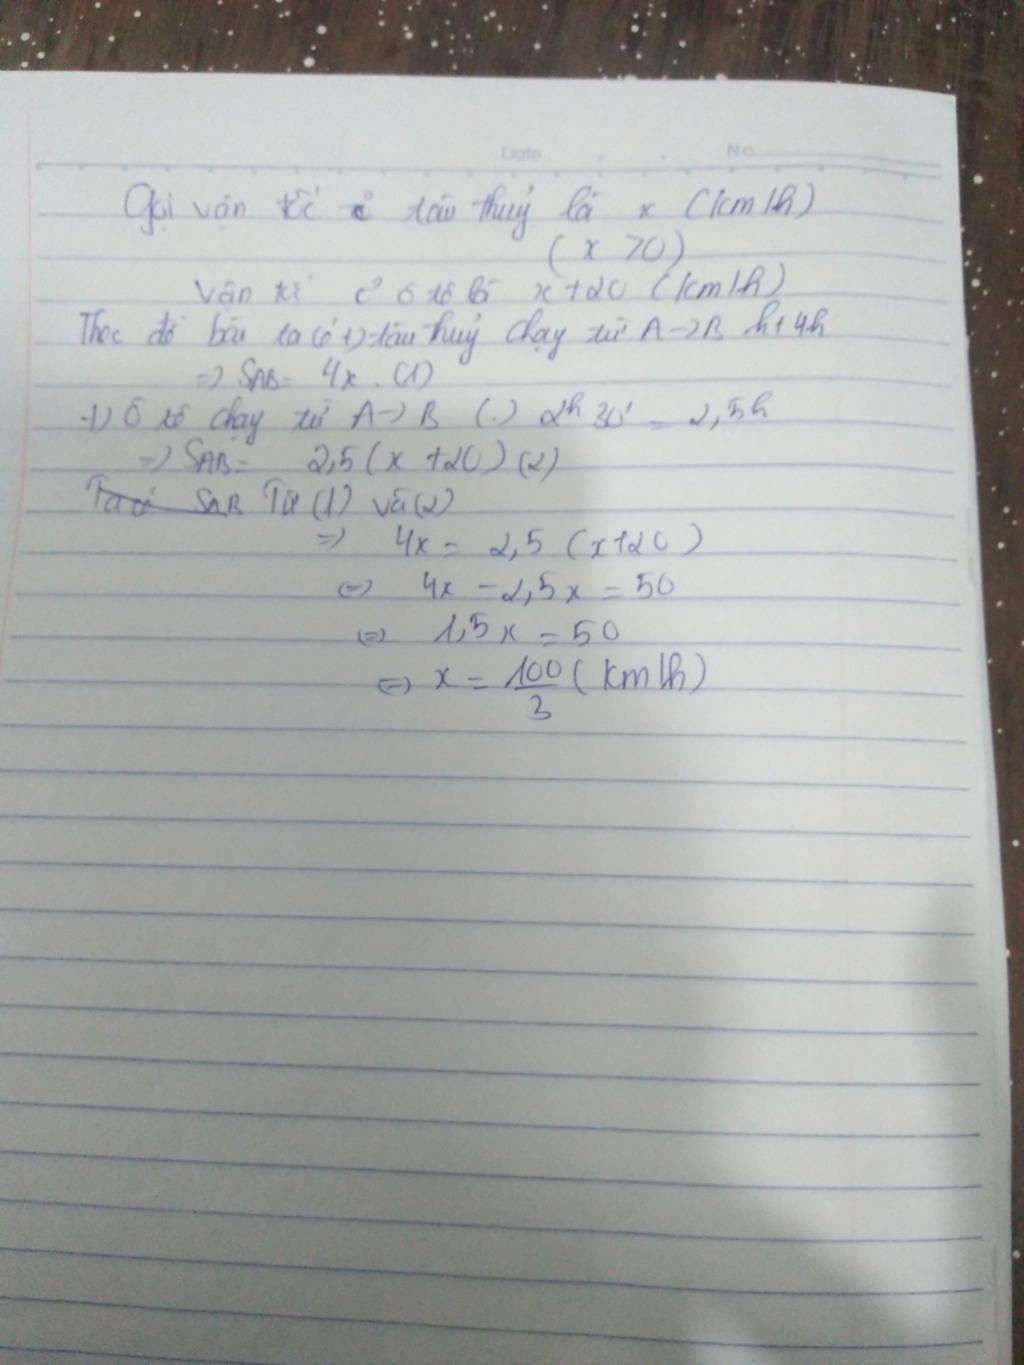 Date No
Gọi vận tốc của tàu thuỷ là x (km/h)
(x > 0)
Vận tốc ô tô là x + 20 (km/h)
Theo đề bài ta có +) tàu thuỷ chạy từ A → B 4h
=> SAB = 4x . (1)
+) Ô tô chạy từ A → B (.) 2h 30' = 2,5h
=> SAB = 2,5(x + 20) (2)
Ta có SAB Từ (1) và (2)
=> 4x = 2,5 (x + 20)
<=> 4x - 2,5x = 50
<=> 1,5x = 50
<=> x = 100/3 (km/h)